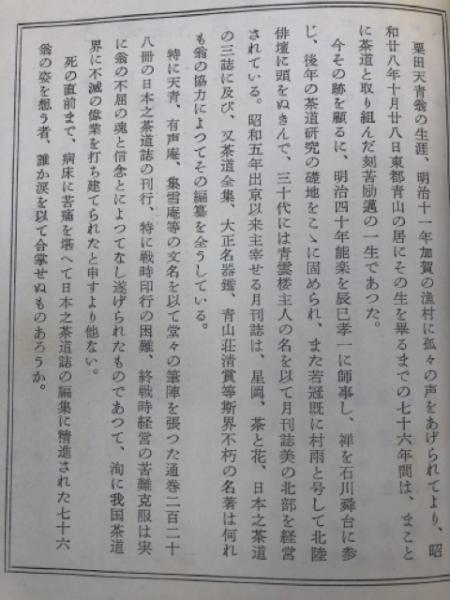 粟田天青翁の生涯、明治十一年加賀の漁村に孤々の声をあげられてより、昭
和廿八年十月廿八日東都青山の居にその生を畢るまでの七十六年間は、まこと
に茶道と取り組んだ刻苦励邁の一生であつた。
今その跡を顧るに、明治四十年能楽を辰巳孝一に師事し、禅を石川舜台に参
じ、後年の茶道研究の礎地をこゝに固められ、また若冠既に村雨と号して北陸
俳壇に頭をぬきんで、三十代には青雲楼主人の名を以て月刊誌美の北部を経営
されている。昭和五年出京以来主宰せる月刊誌は、星岡、茶と花、日本之茶道
の三誌に及び、又茶道全集、大正名器鑑、青山荘清賞等斯界不朽の名著は何れ
も翁の協力によつてその編纂を全うしている。
特に天青、有声庵、集雪庵等の文名を以て堂々の筆陣を張つた通巻二百二十
八冊の日本之茶道誌の刊行、特に戦時印行の困難、終戦時経営の苦難克服は実
に翁の不屈の魂と信念とによつてなし遂げられたものであつて、洵に我国茶道
界に不滅の偉業を打ち建てられたと申すより他ない。
死の直前まで、病床に苦痛を堪へて日本之茶道誌の編集に精進された七十六
翁の姿を想う者、誰か涙を以て合掌せぬものあろうか。